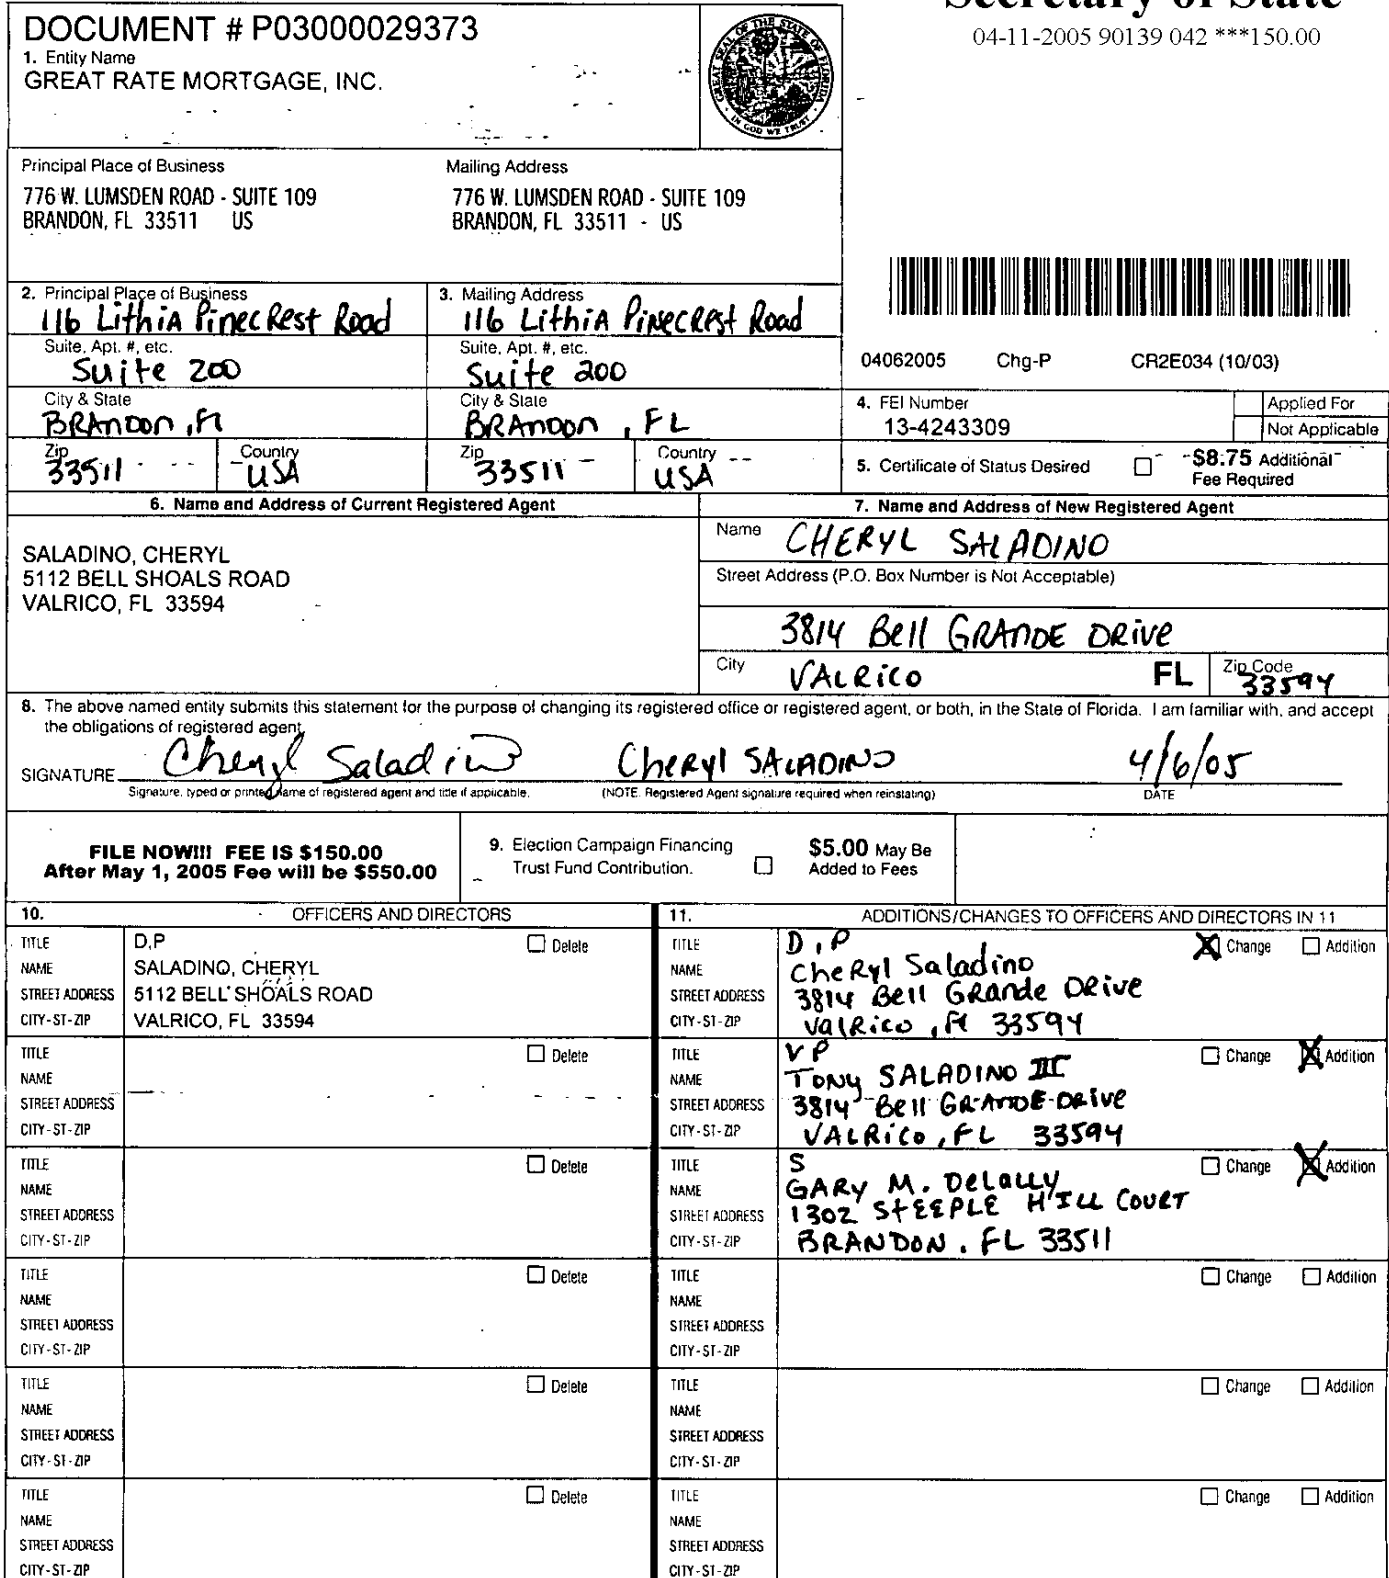 Secretary of State
04-11-2005 90139 042 ***150.00
DOCUMENT # P03000029373
1. Entity Name
GREAT RATE MORTGAGE, INC.
GREAT SEAL OF THE STATE OF FLORIDA
IN GOD WE TRUST
Principal Place of Business
776 W. LUMSDEN ROAD - SUITE 109
BRANDON, FL 33511 US
Mailing Address
776 W. LUMSDEN ROAD - SUITE 109
BRANDON, FL 33511 - US
2. Principal Place of Business
116 Lithia Pinecrest Road
Suite, Apt. #, etc.
Suite 200
City & State
BRANDON, Fl
Zip
33511
Country
USA
3. Mailing Address
116 Lithia Pinecrest Road
Suite, Apt. #, etc.
Suite 200
City & State
BRANDON, FL
Zip
33511
Country
USA
04062005 Chg-P CR2E034 (10/03)
4. FEI Number
13-4243309
Applied For
Not Applicable
5. Certificate of Status Desired
$8.75 Additional
Fee Required
6. Name and Address of Current Registered Agent
SALADINO, CHERYL
5112 BELL SHOALS ROAD
VALRICO, FL 33594
7. Name and Address of New Registered Agent
Name CHERYL SALADINO
Street Address (P.O. Box Number is Not Acceptable)
3814 Bell GRANDE DRIVE
City VALRICO FL Zip Code 33594
8. The above named entity submits this statement for the purpose of changing its registered office or registered agent, or both, in the State of Florida. I am familiar with, and accept
the obligations of registered agent.
SIGNATURE Cheryl Saladino Cheryl SALADINO 4/6/05
Signature, typed or printed name of registered agent and title if applicable. (NOTE: Registered Agent signature required when reinstating) DATE
FILE NOW!!! FEE IS $150.00
After May 1, 2005 Fee will be $550.00
9. Election Campaign Financing
Trust Fund Contribution.
$5.00 May Be
Added to Fees
10. OFFICERS AND DIRECTORS
TITLE D,P Delete
NAME SALADINO, CHERYL
STREET ADDRESS 5112 BELL SHOALS ROAD
CITY-ST-ZIP VALRICO, FL 33594
TITLE Delete
NAME
STREET ADDRESS
CITY-ST-ZIP
TITLE Delete
NAME
STREET ADDRESS
CITY-ST-ZIP
TITLE Delete
NAME
STREET ADDRESS
CITY-ST-ZIP
TITLE Delete
NAME
STREET ADDRESS
CITY-ST-ZIP
TITLE Delete
NAME
STREET ADDRESS
CITY-ST-ZIP
11. ADDITIONS/CHANGES TO OFFICERS AND DIRECTORS IN 11
TITLE D,P X Change Addition
NAME Cheryl Saladino
STREET ADDRESS 3814 Bell Grande Drive
CITY-ST-ZIP Valrico, Fl 33594
TITLE VP Change X Addition
NAME TONY SALADINO III
STREET ADDRESS 3814 Bell GRANDE DRIVE
CITY-ST-ZIP VALRICO, FL 33594
TITLE S Change X Addition
NAME GARY M. DeLally
STREET ADDRESS 1302 STEEPLE HILL COURT
CITY-ST-ZIP BRANDON, FL 33511
TITLE Change Addition
NAME
STREET ADDRESS
CITY-ST-ZIP
TITLE Change Addition
NAME
STREET ADDRESS
CITY-ST-ZIP
TITLE Change Addition
NAME
STREET ADDRESS
CITY-ST-ZIP